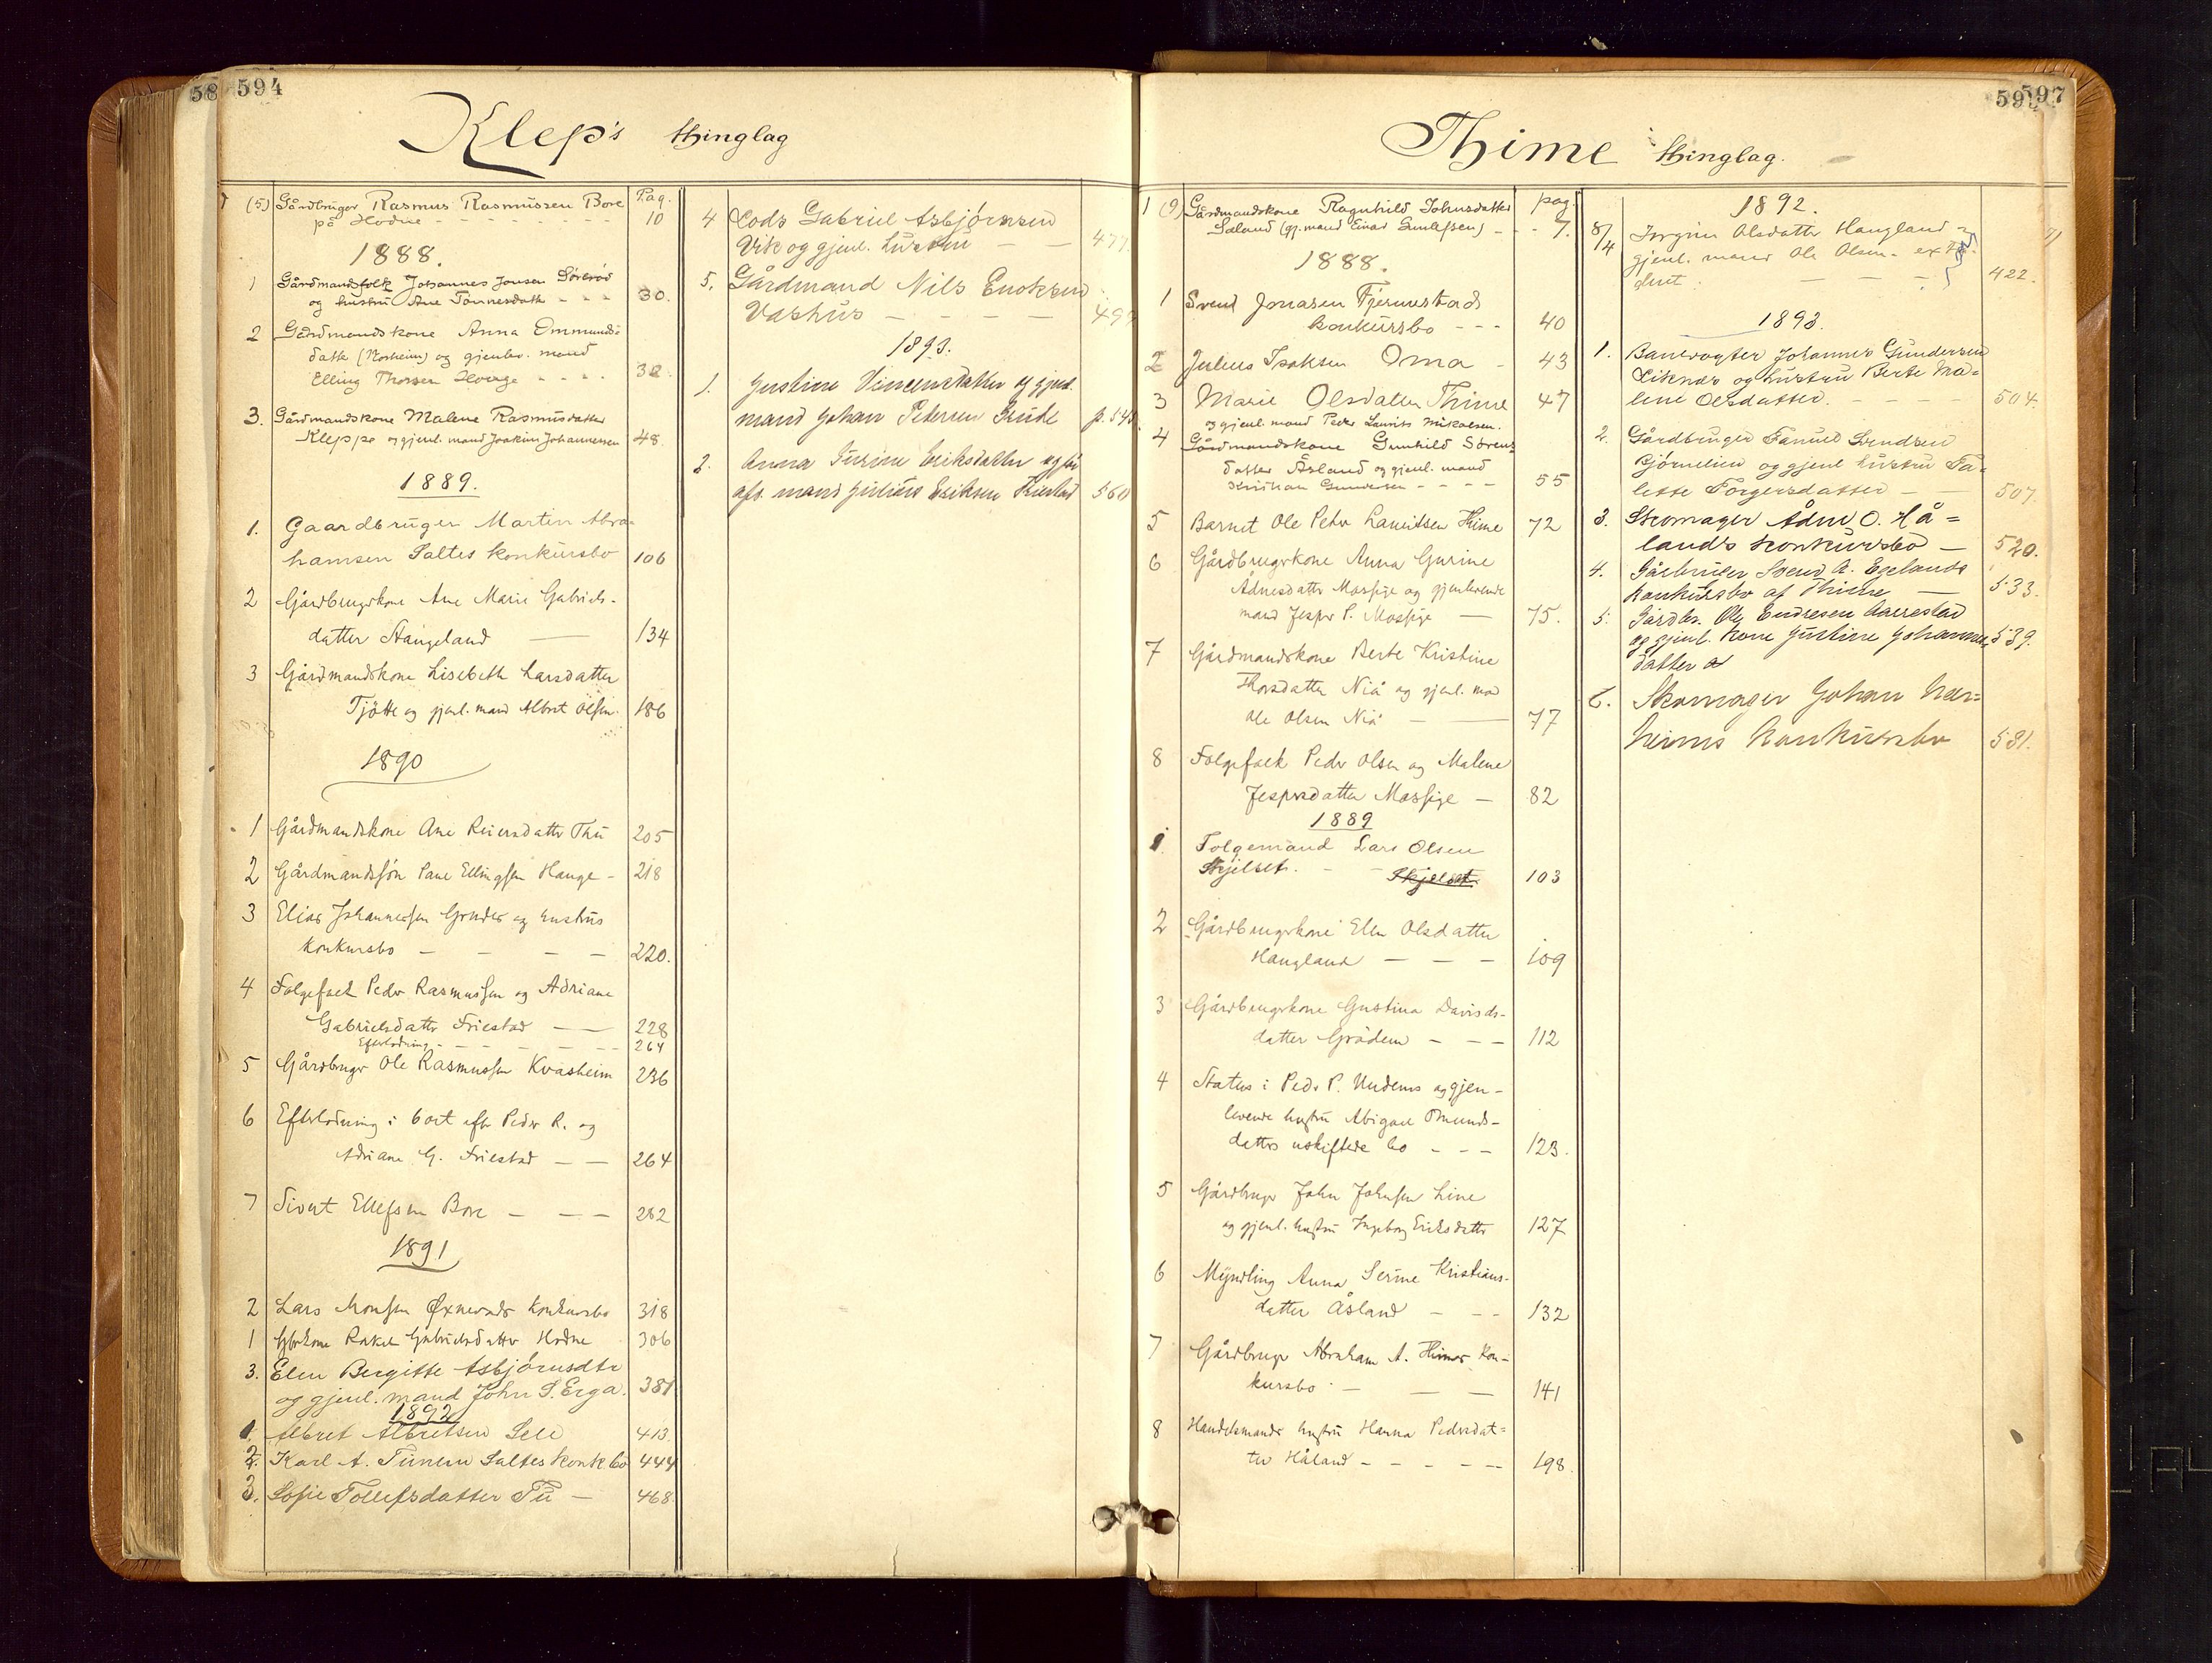 58 594
Klep's thinglag
Pag.
(5) Gårdbruger Rasmus Rasmussen Bore
på Hodne - - - - - 10
1888.
1 Gårdmandsfolk Johannes Jonsen Sørbrød
og hustru Ane Tønnesdatt - - - 30.
2 Gårdmandskone Anna Ommunds-
datt (Norheim) og gjenlev. mand
Elling Thorsen Houge - - - - 32
3. Gårdmandskone Malene Rasmusdatter
Kleppe og gjenl. mand Joakim Johannessen 48.
1889.
1. Gaardbruger Martin Abra-
hamsen Saltes konkursbo 106
2 Gårdbrugerkone Ane Marie Gabriels-
datter Stangeland — 134
3 Gårdmandskone Lisebeth Larsdatter
Tjøtte og gjenl. mand Albert Olsen. 186
1890
1 Gårdmandskone Ane Reiersdatter Thu 205
2 Gårdmandsøn Pane Ellingsen Hauge - 218
3 Elias Johannessen Gruder og hustrus
konkursbo - - - - 220.
4 Folgefolk Peder Rasmussen og Adriane
Gabrielsdatter Friestad — — 228
Efterlodning - - - - - - 264
5 Gårdbruger Ole Rasmussen Kvasheim 236
6 Efterlodning i boet efter Peder R. og
Adriane G. Friestad — — 264
7 Sivert Ellefsen Bore — — — 282
1891
2 Lars Monsen Øxnevads konkursbo 318
1 Gbrkone Rakel Gabrielsdatter Hodne 306
3. Elen Bergitte Asbjørnsdtr
og gjenl. mand John S. Erga. 381
1892
1. Albret Albretsen Sele 413.
2. Karl A. Tunem Saltes konk bo 444
3. Sofie Tollefsdatter Tu — 468.
4 Lods Gabriel Asbjørnsen
Vik og gjenl. hustru — — 477.
5. Gårdmand Nils Enoksen
Vashus — — — — 499
1893.
1. Justine Vincentsdatter og gjenl.
mand Johan Pedersen Grude p. 545
2. Anna Surine Eriksdatter og
afs. mand Julius Eriksen Friestad 560
597
Thime thinglag.
pag.
1 (9) Gårdmandskone Ragnhild Johnsdatter
Saland (gj. mand Einar Gunlefsen) - - 7.
1888.
1 Svend Jonasen Fjermestads
konkursbo - - - 40
2 Julius Isaksen Oma - 43
3 Marie Olsdatter Thime 47
og gjenl. mand Peder Laurits Mikalsen.
4 Gårdmandskone Gunhild Sørens-
datter Åsland og gjenl. mand
Kristian Gundersen - - - - 55
5 Barnet Ole Peder Lauritsen Thime 72
6 Gårdbrugerkone Anna Gurine
Ådnesdatter Mossige og gjenlevende
mand Jesper P. Mossige — 75.
7 Gårdmandskone Berte Kristine
Thorsdatter Niå og gjenl. mand
Ole Olsen Niå — — 77
8 Folgefolk Peder Olsen og Malene
Jespersdatter Mossige — 82
1889
1 Folgemand Lars Olsen
Skjelset. - - Skjelset 103
2 Gårdbrugerkone Elen Olsdatter
Haugland — — — 109
3 Gårdbrugerkone Gustina Davids-
datter Grødem - - - 112
4 Status i Peder P. Undems og gjen-
levende hustru Abigael Omunds-
datters uskiftede bo - - - 123.
5 Gårdbruger John Johnsen Line
og gjenl. hustru Ingeborg Eriksdatter 127
6 Myndling Anna Serine Kristians-
datter Åsland — - - 132
7 Gårdbruger Abraham A. Himes Kon-
kursbo — — — 141
8 Handelsmands hustru Hanna Pedersdat-
ter Håland - - - - - 198.
1892.
8/4 Jorgine Olsdatter Haugland
gjenl. mand Ole Olsen
422.
1893.
1. Banevogter Johannes Gundersen
Liknes og hustru Berte Ma-
lene Olsdatter. - - - - 504.
2. Gårdbruger Samuel Svendsen
Bjørnelien og gjenl hustru Ta-
lette Torgersdatter — — 507.
3. Skomager Ådne O. Hå-
lands konkursbo — 520.
4. Gårbruger Svend A. Egelands
konkursbo af Thime — 533.
5. Gårdbr. Ole Endresen Aarrestad
og gjenl. kone Justine Johannes- 539.
datter
6. Skomager Johan Nær-
heims konkursbo 581.